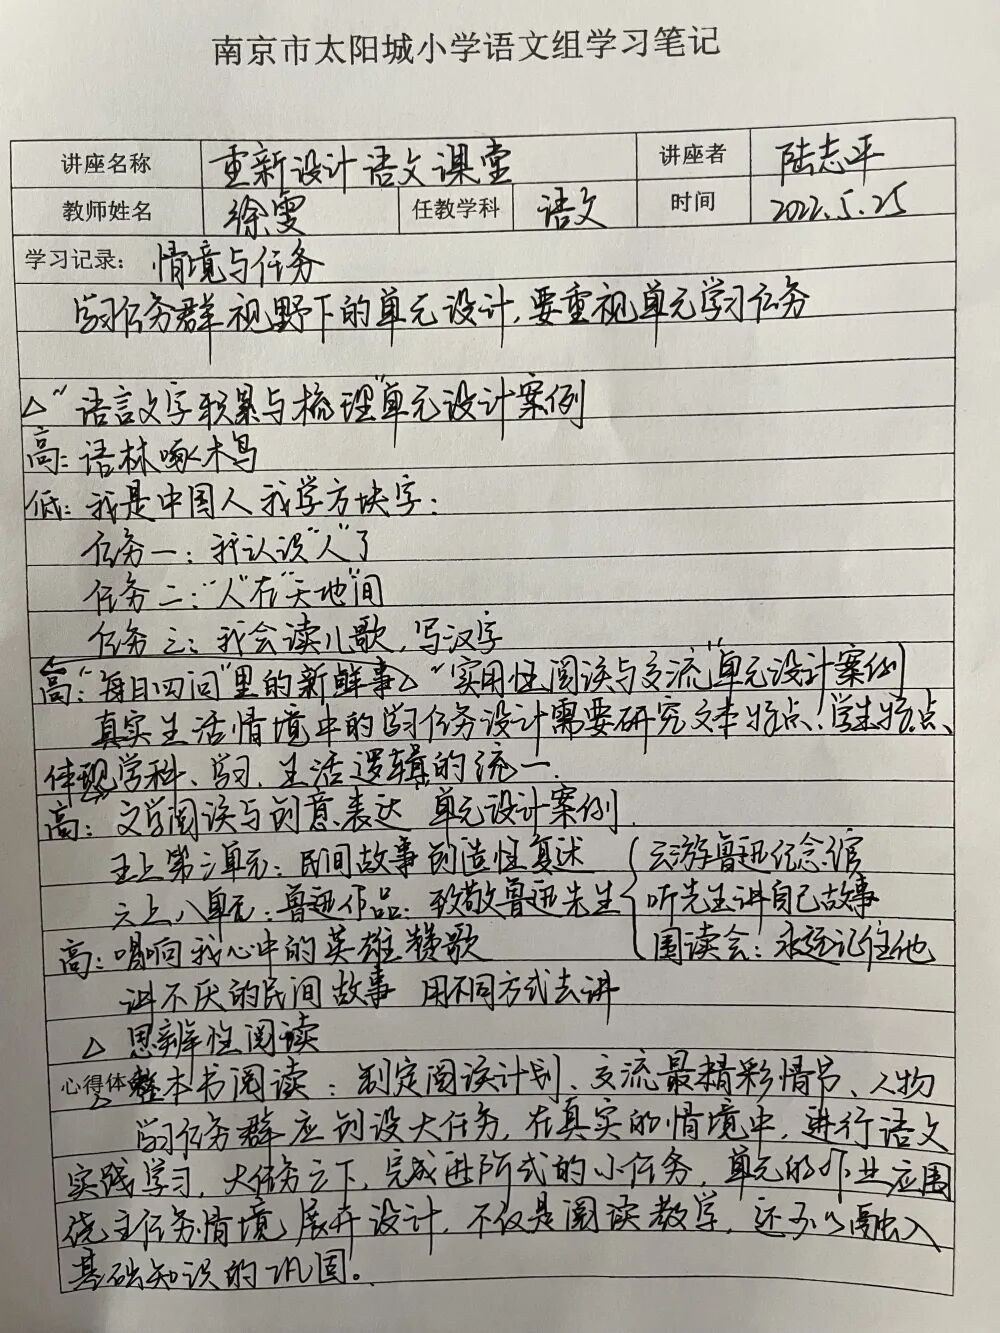 南京市太阳城小学语文组学习笔记
讲座名称 重新设计语文课堂 讲座者 陆志平
教师姓名 徐雯 任教学科 语文 时间 2022.5.25
学习记录： 情境与任务
学习任务群视野下的单元设计，要重视单元学习任务
△“语言文字积累与梳理”单元设计案例
高：语林啄木鸟
低：我是中国人我学方块字：
任务一：我认识“人”了
任务二：“人”在“天地”间
任务三：我会读儿歌，写汉字
高：“每日四问”里的新鲜事△“实用性阅读与交流”单元设计案例
真实生活情境中的学习任务设计需要研究文本特点、学生特点、
体现学科、学习、生活逻辑的统一.
高：文学阅读与创意表达 单元设计案例.
五上第三单元：民间故事创造性复述 云游鲁迅纪念馆
六上八单元：鲁迅作品：致敬鲁迅先生 听先生讲自己故事
高：唱响我心中的英雄赞歌 围读会：永远记住他
讲不厌的民间故事 用不同方式去讲
△ 思辨性阅读
心得体
△整本书阅读：制定阅读计划、交流最精彩情节、人物
学习任务群应创设大任务，在真实的情境中，进行语文
实践学习，大任务之下，完成进阶式的小任务，单元的作业应围
绕主任务情境展开设计，不仅是阅读教学，还可以融入
基础知识的巩固。